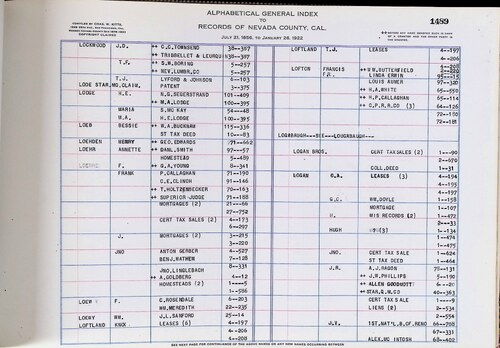 ALPHABETICAL GENERAL INDEX
TO
RECORDS OF NEVADA COUNTY, CAL.
JULY 21, 1856, TO JANUARY 26, 1922
1489
LOCKWOOD J.D. ↔ C.C. TOWNSEND 30--307
↔ TRIBBELLET & 30--307
T.F. ↔ S.W. BORING 5--257
↔ NEW.LUMBR.CO 5--257
T.J. LYFORD & JOHNSON 5--103
LODE STAR.MG.CLAIM. PATENT 3--375
LODGE H.E. N.G. SEGERSTRAND 101-409
↔ M.A. LODGE 100-395
MARIA S. MC KAY 54--48
W.A. H.E. LODGE 100-395
LOEB BESSIE ↔ W.A. BUCKNAM 115--336
ST TAX DEED 10--83
LOEHDEN HENRY ↔ GEO. EDWARDS 71--66
LOEHR ANNETTE ↔ DANL. SMITH 97--57
HOMESTEAD 5--489
F. ↔ G.A. YOUNG 8--341
FRANK P. CALLAGHAN 71--190
C.E. CLINCH 91--146
↔ T. HOLTZENBECKER 70--163
↔ SUPERIOR JUDGE 71--188
MORTGAGES (2) 21--66
27--752
CERT TAX SALES (2) 4--173
6--297
J. MORTGAGES (2) 3--215
3--220
JNO ANTON GERBER 4--527
BENJ. WATKEN 7--128
JNO. LINGLEBACH 8--331
↔ A. GOLDBERG 4--12
HOMESTEADS (2) 1--5
1--586
LOEW F. C. ROSENDALE 6--203
WM. MEREDITH 22--235
LOENY WM. J.L. SANFORD 25--14
LOFTLAND KNOX LEASES (6) 4--197
4--206
4--208
LOFTLAND T.J. LEASES 4--197
4--206
LOFTON FRANCIS ↔ WM. BUTTERFIELD
LINDA ERWIN
LOUIS AUNER 97--320
↔ H.A. WHITE 65--550
↔ H.P. CALLAGHAN 65--114
↔ C.P.R.R CO (3) 64--126
72--180
72--181
LOGABAUGH---SEE---LOUGHBAUGH---
LOGAN BROS. CERT TAX SALES (2) 1---90
2--670
COLL. DEED 1--31
LOGAN LEASES (3) 4--194
4--195
4--197
WM. DOYLE 1--158
MORTGAGE 1--107
H. MIS RECORDS (2) 1--472
2---33
HUGH (3) 1--134
1--474
1--475
JNO. CERT TAX SALE 1--624
ST TAX DEED 1--464
J.R. A.J. RAGON 70--131
↔ J.H. PHILLIPS 5--190
↔ ALLEN GOODNOTT
CERT TAX SALE 1---9
LIENS (2) 2--534
2--554
J.V. 1ST. NAT'L. B. OF. RENO 66--708
67--331
ALEX. MC INTOSH 68--402
SEE NEXT PAGE FOR CONTINUANCE OF THE ABOVE NAMES OR ANY NEW NAMES OCCURRING BETWEEN